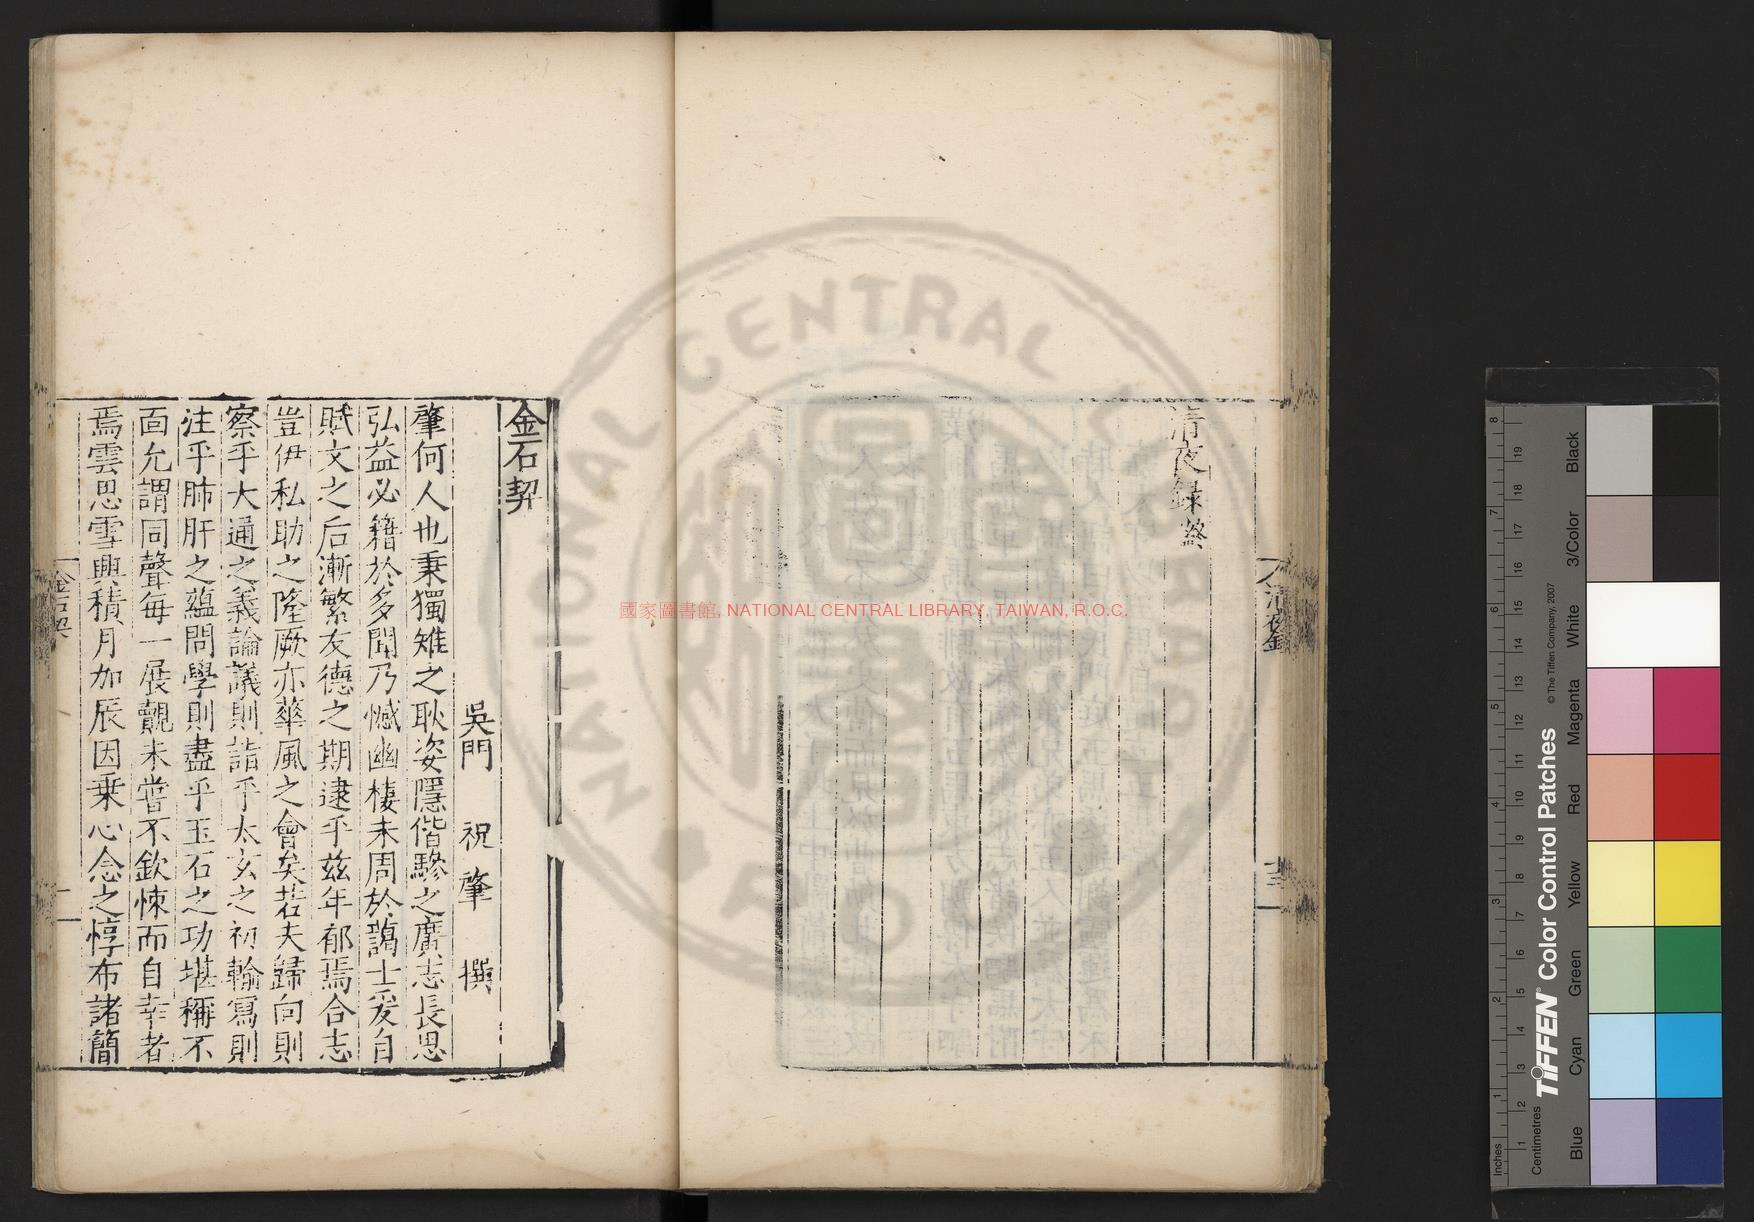 清夜錄終
清夜錄
金石契
吳門 祝肇 撰
肇何人也秉獨雉之耿姿隱偕驂之廣志長思
弘益必籍於多聞乃憾幽棲未周於藹士爰自
賦文之后漸繁友德之期逮乎茲年郁焉合志
豈伊私助之隆厥亦華風之會矣若夫歸向則
察乎大通之義論議則詣乎太玄之初輸寫則
注乎肺肝之蘊問學則盡乎玉石之功堪稱不
面允謂同聲每一展覿未嘗不欽悚而自幸者
焉雲思雪興積月加辰因乗心念之惇布諸簡
金石契
一
國家圖書館, NATIONAL CENTRAL LIBRARY, TAIWAN, R.O.C.
NATIONAL CENTRAL LIBRARY
Inches
Centimetres
TIFFEN® Color Control Patches
© The Tiffen Company, 2007
Blue
Cyan
Green
Yellow
Red
Magenta
White
3/Color
Black